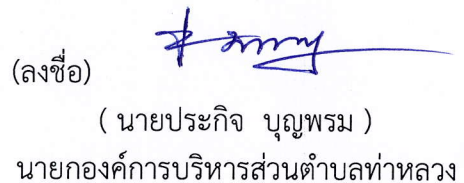 (ลงชื่อ)
( นายประกิจ บุญพรม )
นายกองค์การบริหารส่วนตำบลท่าหลวง